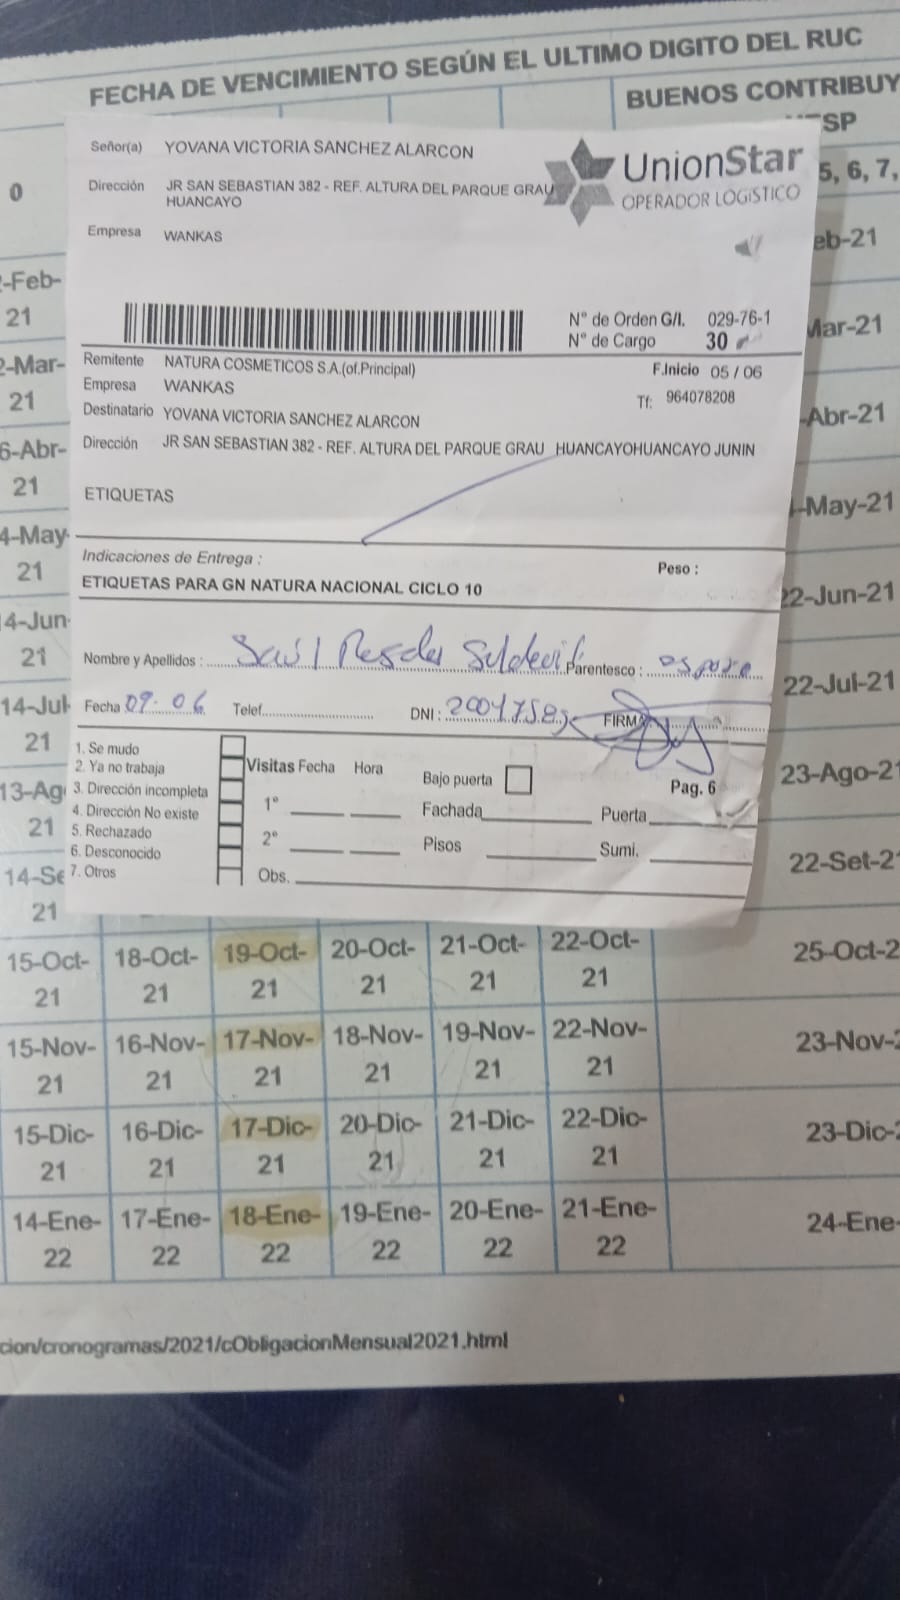 FECHA DE VENCIMIENTO SEGÚN EL ULTIMO DIGITO DEL RUC
BUENOS CONTRIBUY
SP
0
5, 6, 7,
Señor(a) YOVANA VICTORIA SANCHEZ ALARCON
UnionStar
OPERADOR LOGíSTICO
Dirección JR SAN SEBASTIAN 382 - REF. ALTURA DEL PARQUE GRAU
HUANCAYO
Empresa WANKAS
N° de Orden G/I. 029-76-1
N° de Cargo 30
Remitente NATURA COSMETICOS S.A.(of.Principal)
F.Inicio 05 / 06
Empresa WANKAS
Tf: 964078208
Destinatario YOVANA VICTORIA SANCHEZ ALARCON
Dirección JR SAN SEBASTIAN 382 - REF. ALTURA DEL PARQUE GRAU HUANCAYOHUANCAYO JUNIN
ETIQUETAS
Indicaciones de Entrega :
Peso :
ETIQUETAS PARA GN NATURA NACIONAL CICLO 10
Nombre y Apellidos : Saúl
Parentesco :
Fecha 09-06 Telef. DNI : FIRMA
1. Se mudo
2. Ya no trabaja
3. Dirección incompleta
4. Dirección No existe
5. Rechazado
6. Desconocido
7. Otros
Visitas Fecha Hora
Bajo puerta
Pag. 6
1°
Fachada
Puerta
2°
Pisos
Sumi.
Obs.
-Feb-
21
eb-21
-Mar-
21
Mar-21
6-Abr-
21
-Abr-21
4-May-
21
-May-21
4-Jun-
21
22-Jun-21
14-Jul-
21
22-Jul-21
13-Ag
21
23-Ago-2
14-Se
21
22-Set-2
15-Oct-21 18-Oct-21 19-Oct-21 20-Oct-21 21-Oct-21 22-Oct-21 25-Oct-2
15-Nov-21 16-Nov-21 17-Nov-21 18-Nov-21 19-Nov-21 22-Nov-21 23-Nov-2
15-Dic-21 16-Dic-21 17-Dic-21 20-Dic-21 21-Dic-21 22-Dic-21 23-Dic-2
14-Ene-22 17-Ene-22 18-Ene-22 19-Ene-22 20-Ene-22 21-Ene-22 24-Ene-
cion/cronogramas/2021/cObligacionMensual2021.html